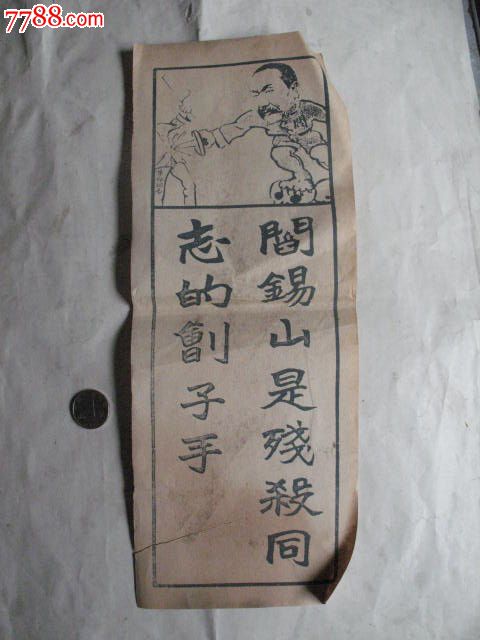 7788.com
閻錫山是殘殺同
志的劊子手
閻